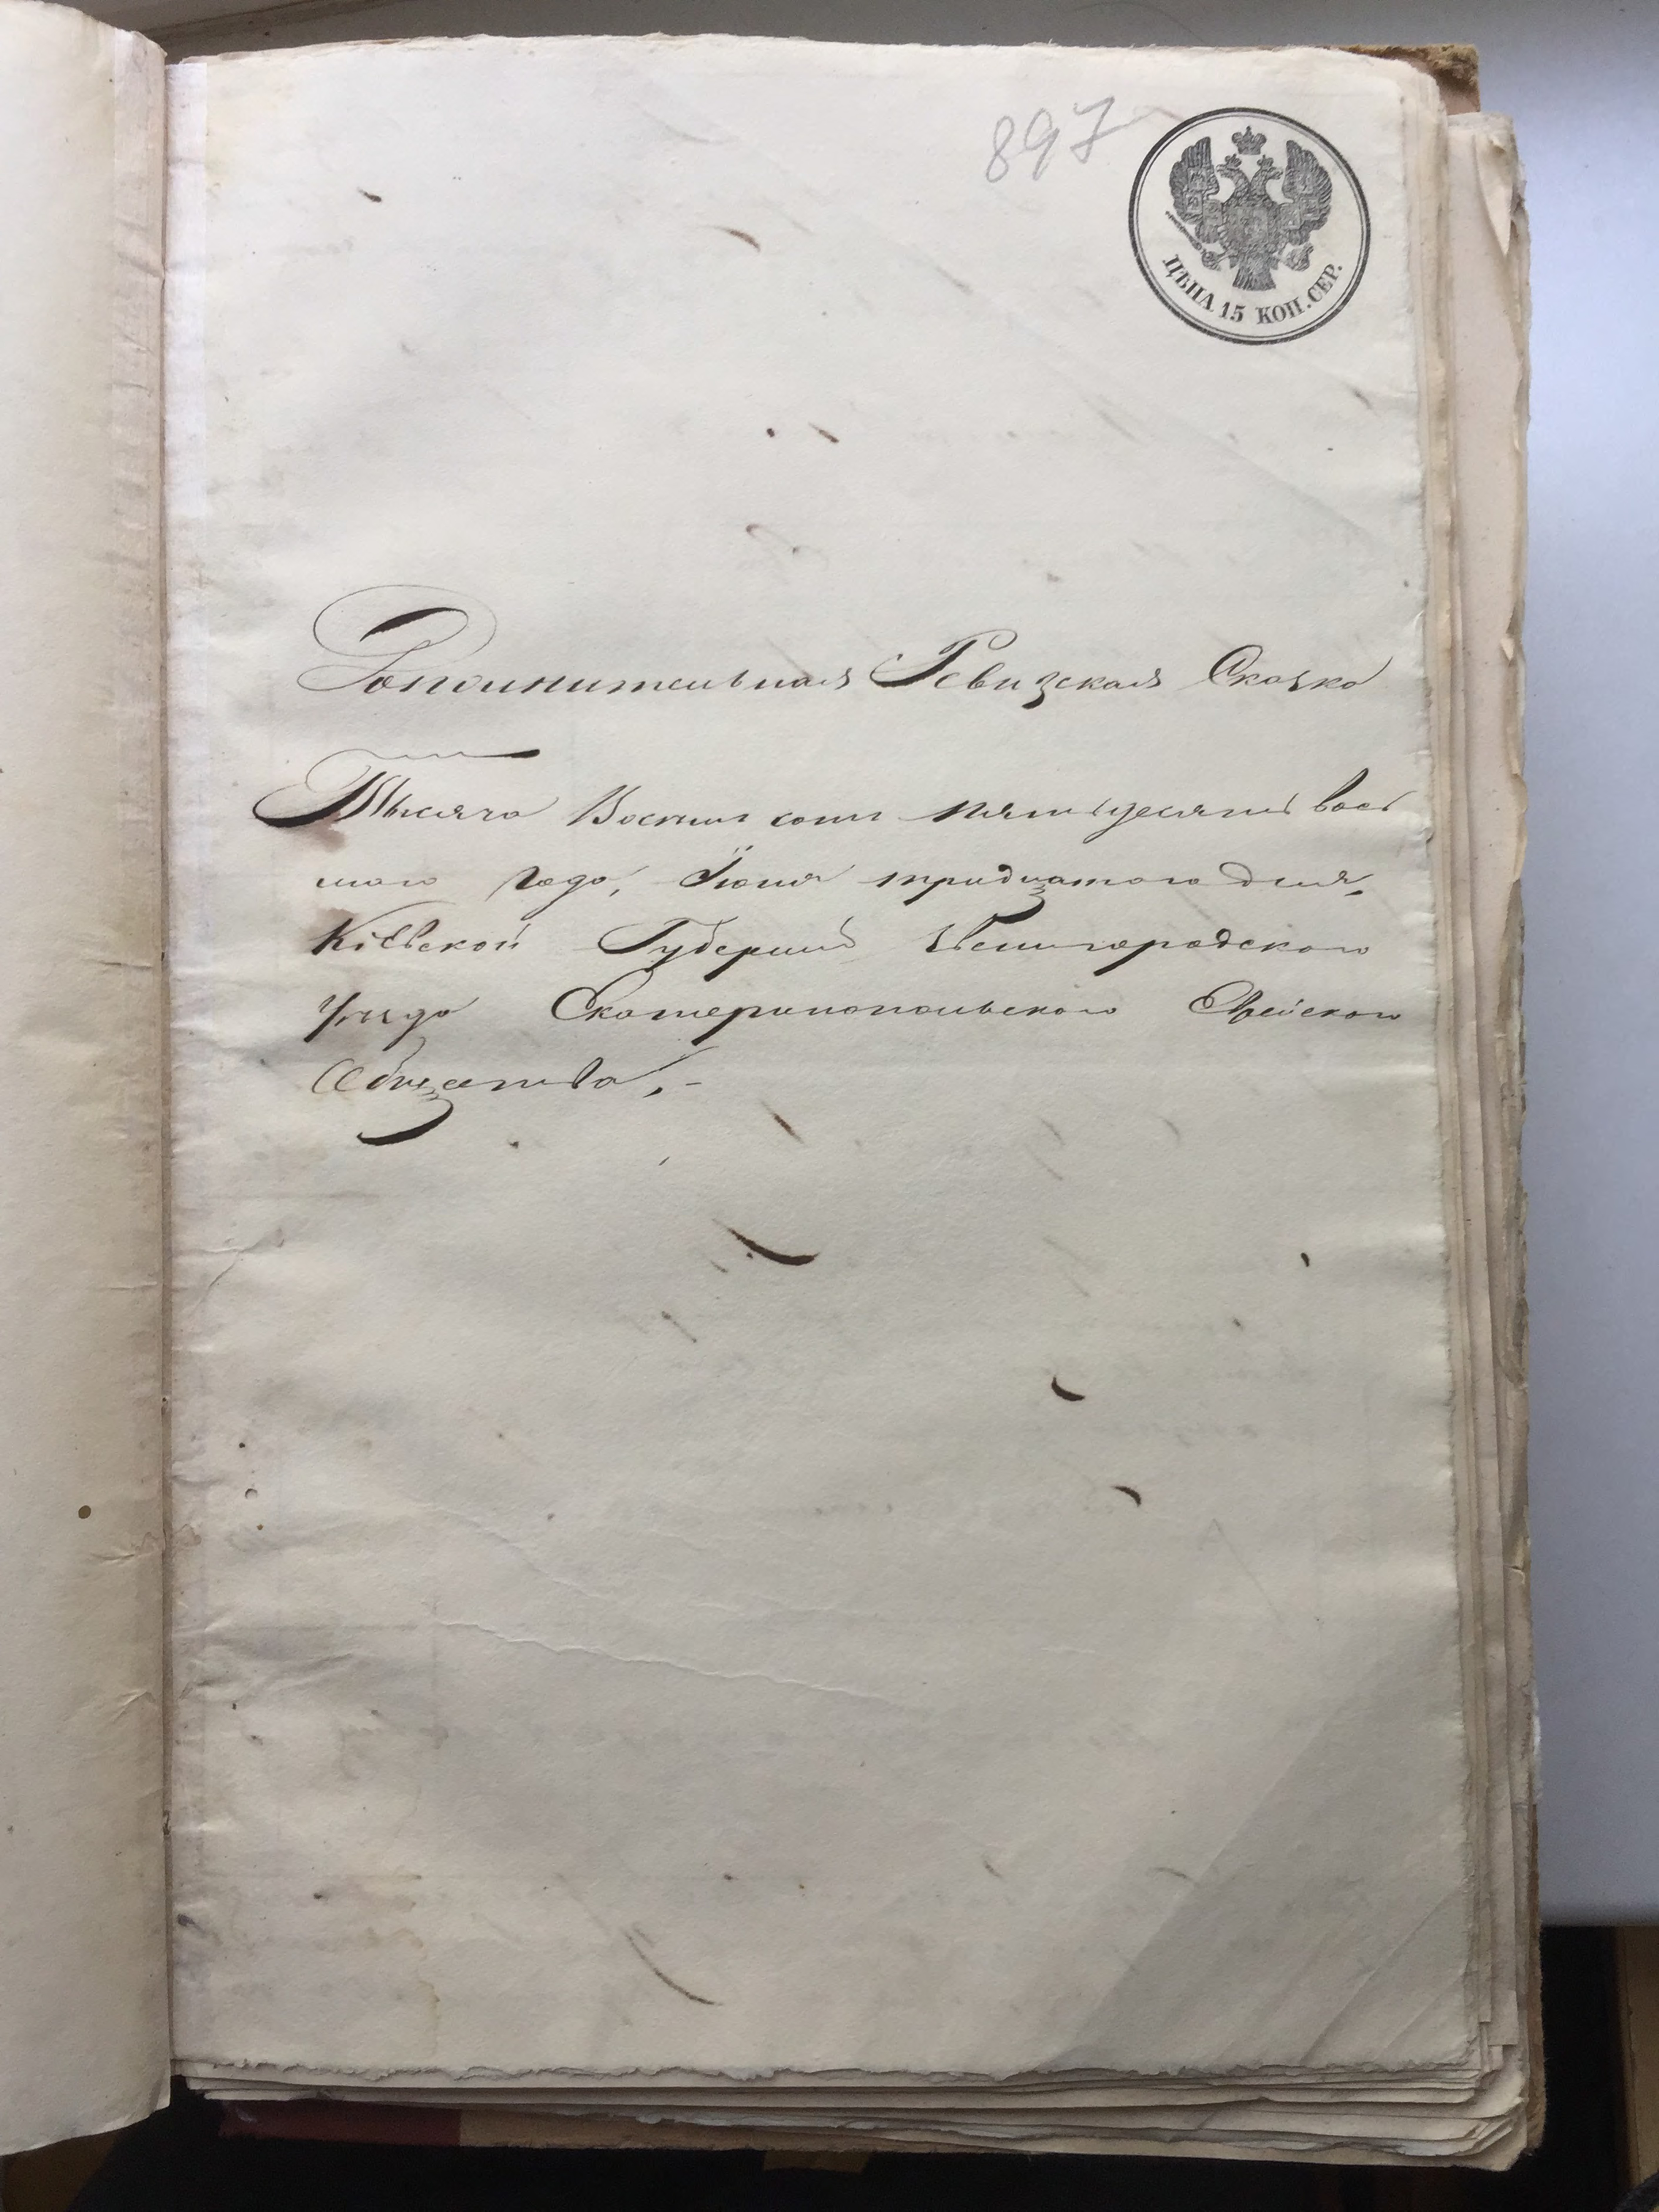 897
ЦѢНА 15 КОП. СЕР.
Дополнительная Ревизская Сказка
Тысяча Восемь сотъ пятьдесятъ вось
маго года, Іюня тридцатаго дня,
Кіевской Губерніи Звенигородскаго
уѣзда Екатеринопольскаго Еврейскаго
Общества,-